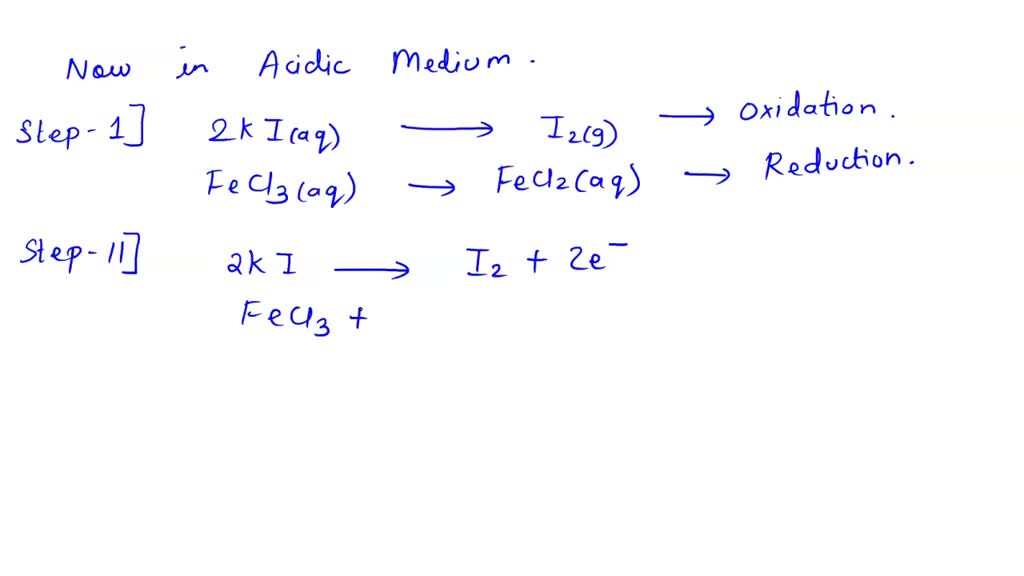 Now in Acidic Medium.
Step-1] 2kI(aq) → I₂(g) → Oxidation.
FeCl₃(aq) → FeCl₂(aq) → Reduction.
Step-11] 2kI → I₂ + 2e⁻
FeCl₃ +